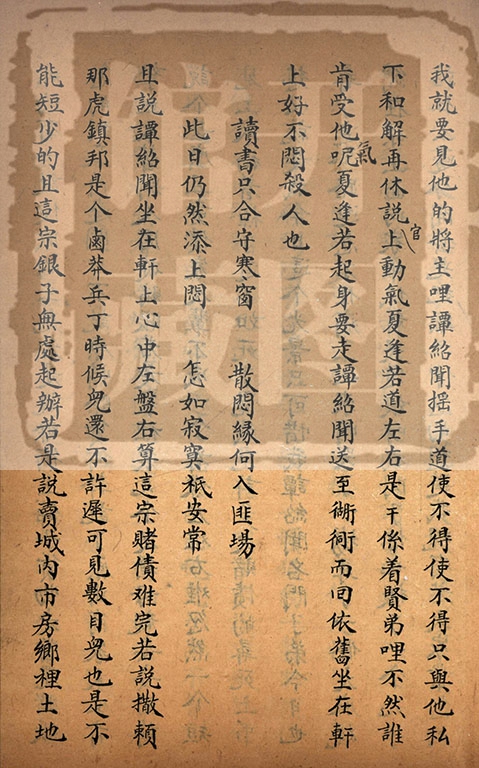 我就要見他的將主哩譚紹聞搖手道使不得使不得只與他私
下和解再休說上官動氣夏逢若道左右是干係着賢弟哩不然誰
肯受他氣呢夏逢若起身要走譚紹聞送至衚衕而回依舊坐在軒
上好不悶殺人也
讀書只合守寒窗 散悶緣何入匪場
此日仍然添上悶 怎如寂寞秖安常
且説譚紹聞坐在軒上心中左盤右算這宗賭債难完若説撒賴
那虎鎮邦是个鹵莽兵丁時候兒還不許遲可見數目兒也是不
能短少的且這宗銀子無處起辦若是説賣城内市房鄉裡土地